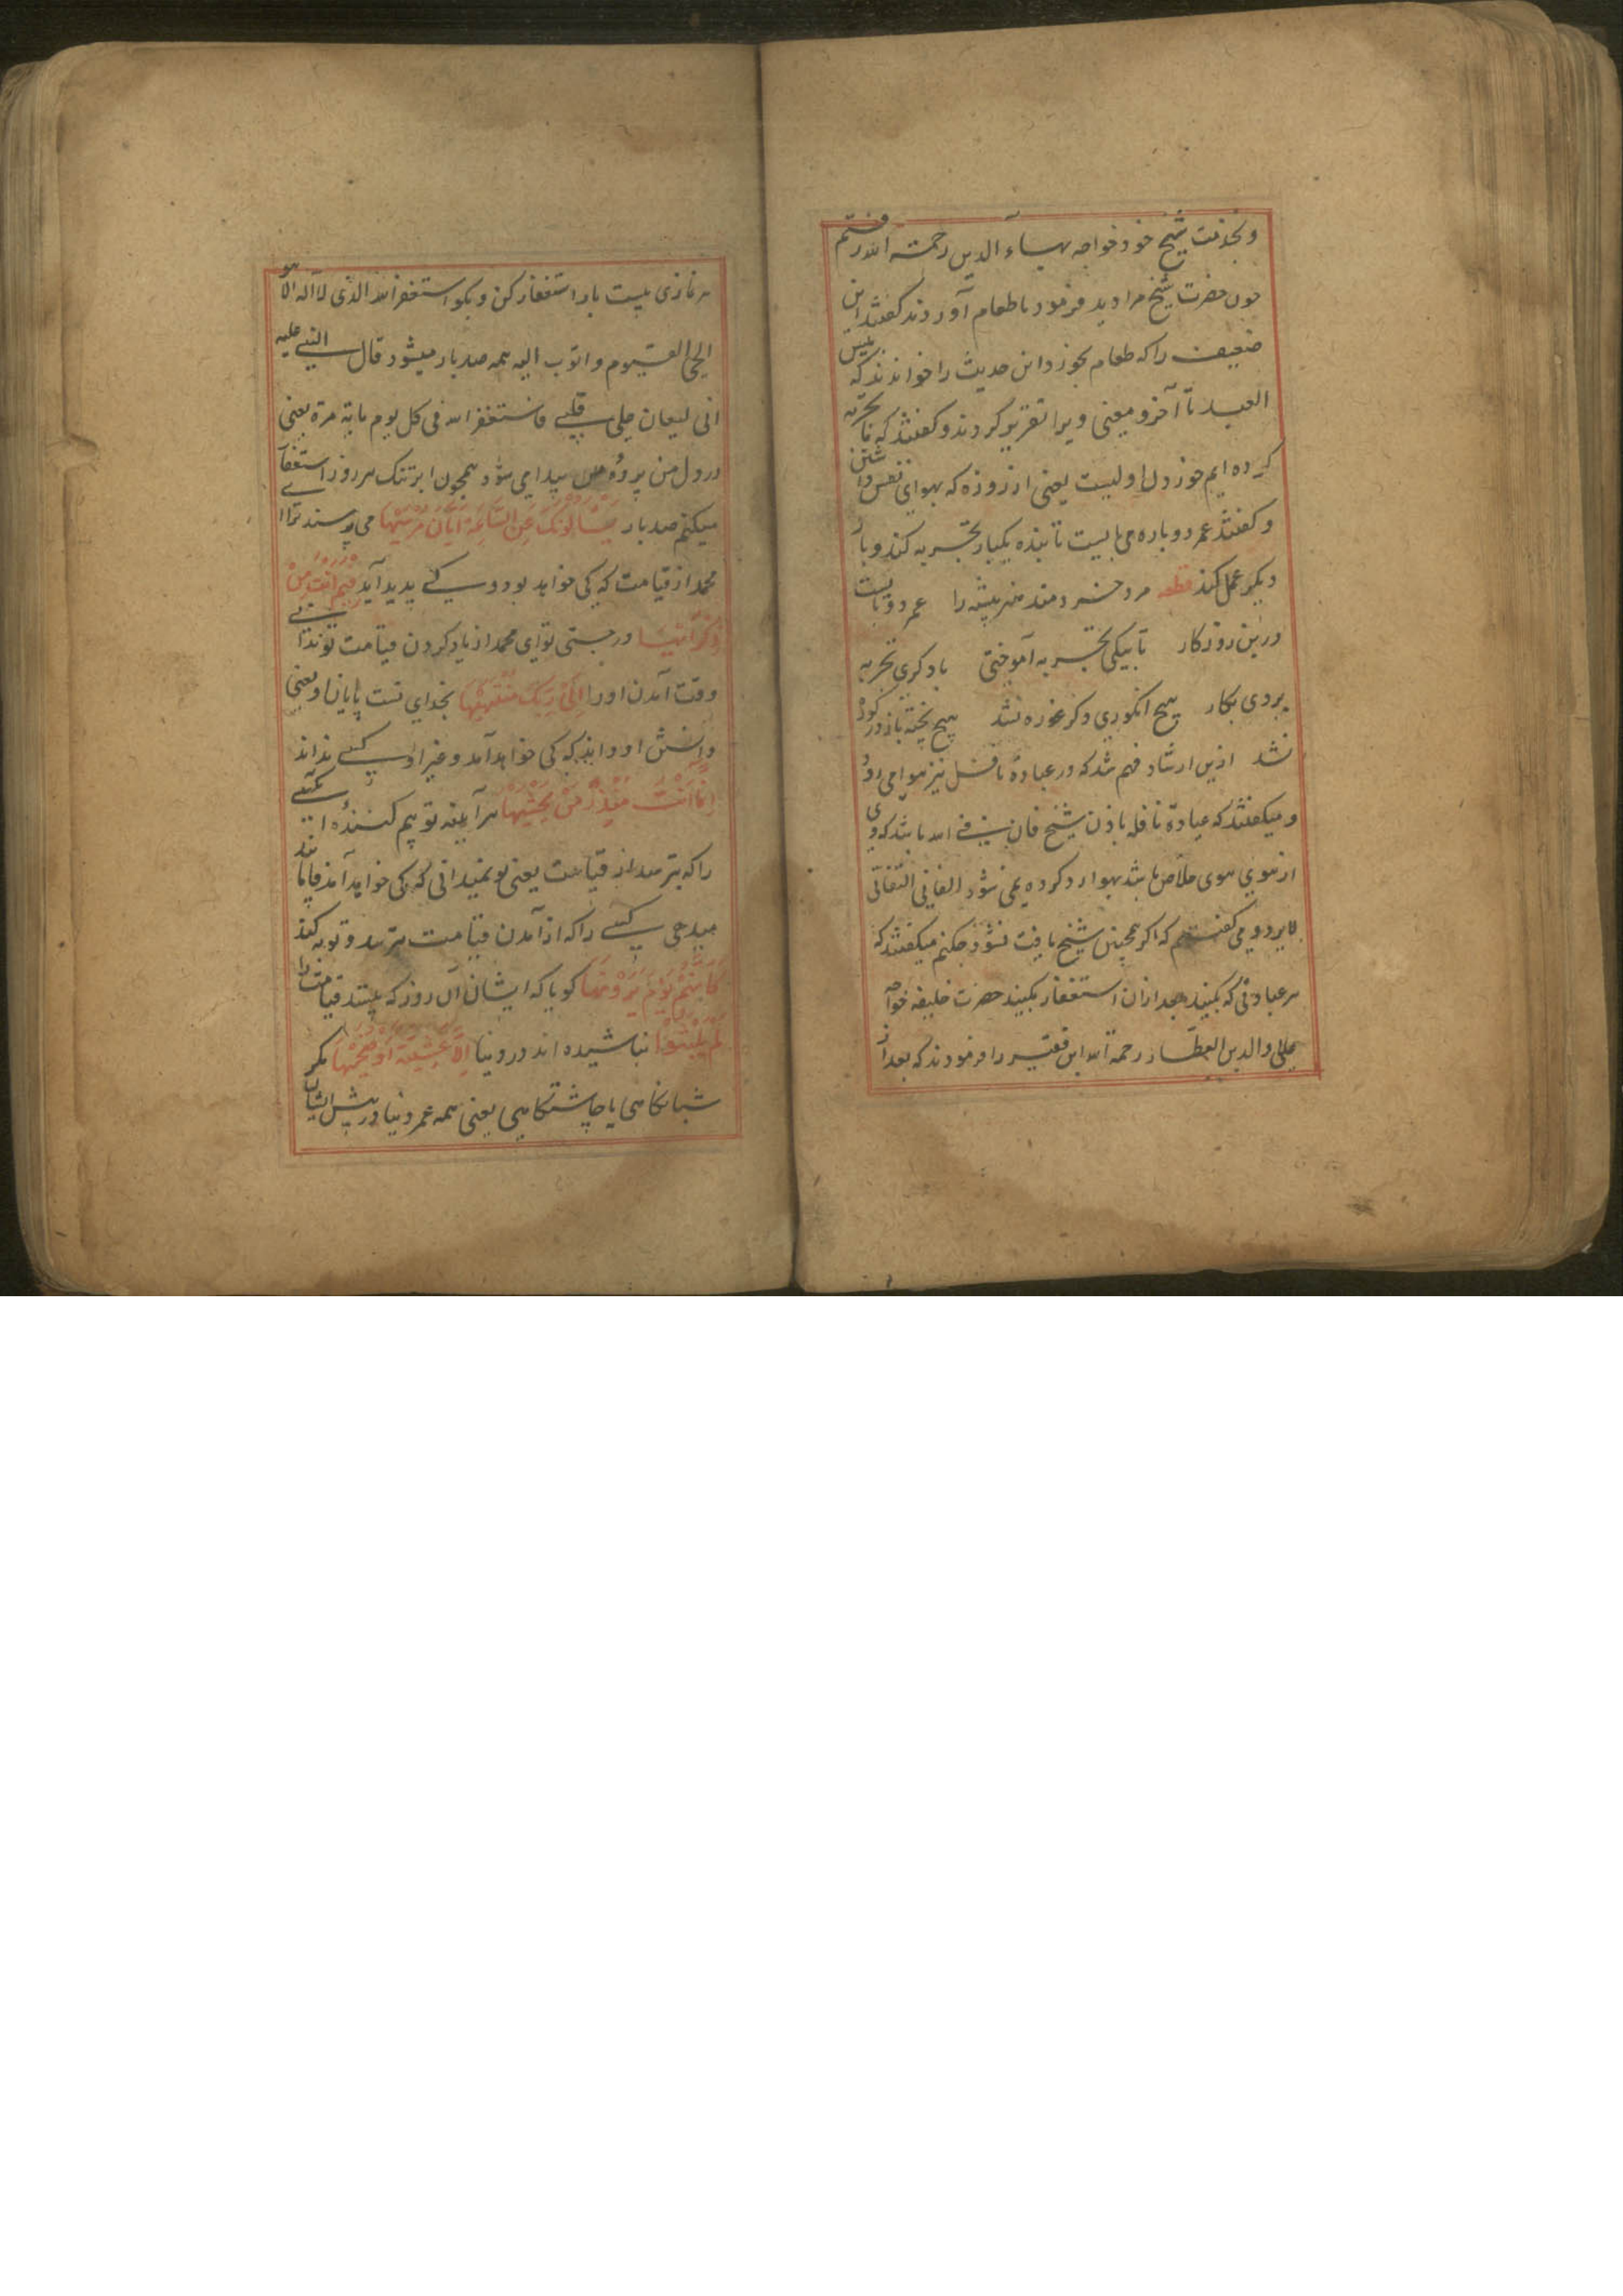 وبخدمت شیخ خود خواجه بهاء الدین رحمة الله رفتم
چون حضرت شیخ مرا دید فرمود تا طعام آوردند گفتند این
ضعیف را که طعام بخور و این حدیث را خواندند که بئس
العبد تا آخر و معنی ویرا تقریر کردند و گفتند که ما تجربه
کرده ایم خوردن اولیست یعنی از روزه که بهوای نفس داشتن
و گفتند عمر دوباره می بایست تا بنده یکبار تجربه کند و بار
دیگر عمل کند قطعه مرد خردمند هنر پیشه را عمر دو بایست
درین روزکار تا بیکی تجربه آموختی با دگری تجربه
بردی بکار هیچ انگوری دگر غوره نشد هیچ پخته باز در
نشد ازین ارشاد فهم شد که در عبادة نافله نیز هوا می رود
و میگفتند که عبادة نافله باذن شیخ فان فی الله باشد که وی
از هوی خلاص باشد بهوا رد کرده نمی شود الفانی
لا یرد و می گفتم که اگر همچنین شیخ یافت نشود چکنم میگفتند که
هر عبادتی که بکنید بعد ازان استغفار بکنید حضرت خلیفه خواجه
علاء والدین العطار رحمة الله این فقیر را فرمودند که بعد از
هر نمازی بیست بار استغفار کن و بکو استغفر الله الذی لا اله الا هو
الحی القیوم واتوب الیه همه صد بار میشود قال النبی علیه
انی لیغان علی قلبی فاستغفر الله فی کل یوم مایة مرة یعنی
در دل من پرده پیدا می شود همچون ابر تنک هر روز استغفار
میکنم صد بار یَسْأَلُونَكَ عَنِ السَّاعَةِ اَیَّانَ مُرْسٰیهَا می پرسند ترا ا
محمد از قیامت که کی خواهد بود و کی پدید آید فِیمَ اَنْتَ مِنْ
ذِكْرٰیهَا در چستی تو ای محمد از یاد کردن قیامت تو ندا
وقت آمدن او را اِلٰی رَبِّكَ مُنْتَهٰیهَا بخدای تست پایان او یعنی
دانش او که کی خواهد آمد و غیر او کسی نداند
اِنَّمَا اَنْتَ مُنْذِرُ مَنْ یَخْشٰیهَا هر آیینه تو بیم کننده
را که بترسد از قیامت یعنی تو نمیدانی که کی خواهد آمد
کسی را که از آمدن قیامت بترسد و توبه کند
کَاَنَّهُمْ یَوْمَ یَرَوْنَهَا کویا که ایشان آن روز که بینند قیامت را
لَمْ یَلْبَثُوْا نباشیده اند در دنیا اِلَّا عَشِیَّةً اَوْ ضُحٰیهَا مکر
شبانکاهی یا چاشتکاهی یعنی همه عمر دنیا در پیش ایشان